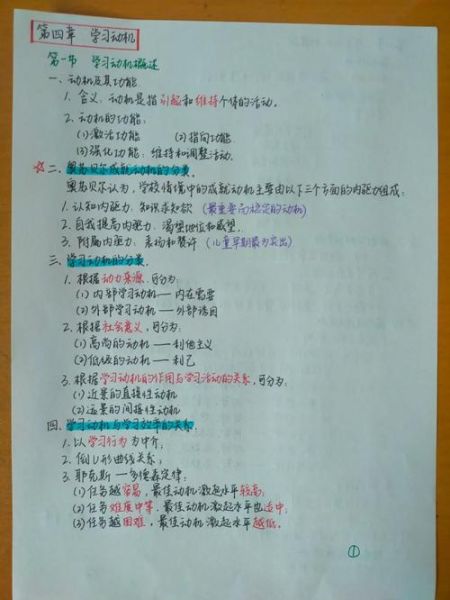 第四章 学习动机
第一节 学习动机概述
一、动机及其功能
1. 含义：动机是指引起和维持个体的活动。
2. 动机的功能：
(1)激活功能 (2)指向功能
(3)强化功能：维持和调整活动。
☆二、奥苏贝尔成就动机的分类。
奥苏贝尔认为，学校情境中的成就动机主要由以下三个方面的内驱力组成：
1. 认知内驱力：知识求知欲（最重要而稳定的动机）
2. 自我提高内驱力：渴望地位和威望。
3. 附属内驱力：表扬和赞许（儿童早期最为突出）
三、学习动机的分类。
1. 根据动力来源，可分为：
(1)内部学习动机——内在需要
(2)外部学习动机——外部诱因
2. 根据社会意义，可分为：
(1)高尚的动机——利他主义
(2)低级的动机——利己
3. 根据学习动机的作用与学习活动的关系，可分为：
(1)近景的直接性动机
(2)远景的间接性动机
四、学习动机与学习效率的关系。
1. 以学习行为为中介，
2. 倒U形曲线关系；
3. 耶克斯—多德森定律：
(1)任务越容易，最佳动机激起水平较高；
(2)任务难度中等，最佳动机激起水平也适中；
(3)任务越困难，最佳动机激起水平越低。
①